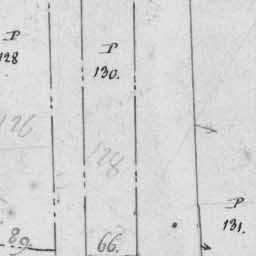 P
128
P
130.
126
128
P
131.
89.
66.